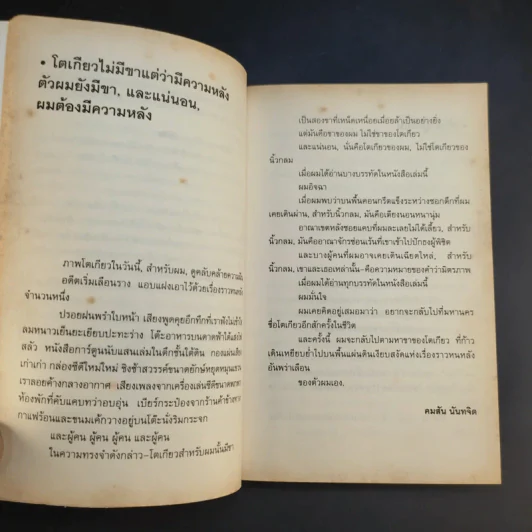 • โตเกียวไม่มีขาแต่ว่ามีความหลัง
ตัวผมยังมีขา, และแน่นอน,
ผมต้องมีความหลัง
ภาพโตเกียวในวันนี้, สำหรับผม, ดูคลับคล้ายความฝัน
อดีตเริ่มเลือนราง แอบแฝงเอาไว้ด้วยเรื่องราวหนหลัง
จำนวนหนึ่ง
ปรอยฝนพรำใบหน้า เสียงพูดคุยอึกทึกที่เรายังไม่เข้าใจ
ลมหนาวเย็นยะเยียบปะทะร่าง โต๊ะอาหารบนดาดฟ้าได้
สลัว หนังสือการ์ตูนนับแสนเล่มในตึกชั้นใต้ดิน กองแผ่นเสียง
เก่าเก่า กล่องซีดีใหม่ใหม่ ชิงช้าสวรรค์ขนาดยักษ์หยุดหมุนขณะ
เราลอยค้างกลางอากาศ เสียงเพลงจากเครื่องเล่นซีดีขนาดพกพา
ห้องพักที่คับแคบทว่าอบอุ่น เบียร์กระป๋องจากร้านค้าข้างทาง
กาแฟร้อนและขนมเค้กวางอยู่บนโต๊ะนั่งริมกระจก
และผู้คน ผู้คน ผู้คน และผู้คน
ในความทรงจำดังกล่าว–โตเกียวสำหรับผมนั้นมีขา
เป็นสองขาที่เหน็ดเหนื่อยเมื่อยล้าเป็นอย่างยิ่ง
แต่มันคือขาของผม ไม่ใช่ขาของโตเกียว
และแน่นอน, นั่นคือโตเกียวของผม, ไม่ใช่โตเกียวของ
นิ้วกลม
เมื่อผมได้อ่านบางบรรทัดในหนังสือเล่มนี้
ผมอิจฉา
เมื่อผมพบว่าบนพื้นคอนกรีตแข็งระหว่างซอกตึกที่ผม
เคยเดินผ่าน, สำหรับนิ้วกลม, มันคือเตียงนอนหนานุ่ม
อาณาเขตหลังซอยแคบที่ผมละเลยไม่ได้เลี้ยว, สำหรับ
นิ้วกลม, มันคืออาณาจักรซ่อนเร้นที่เขาเข้าไปปักธงผู้พิชิต
และบางผู้คนที่ผมอาจเคยเดินเฉียดไหล่, สำหรับ
นิ้วกลม, เขาและเธอเหล่านั้น–คือความหมายของคำว่ามิตรภาพ
เมื่อผมได้อ่านทุกบรรทัดในหนังสือเล่มนี้
ผมมั่นใจ
ผมเคยคิดอยู่เสมอมาว่า อยากจะกลับไปที่มหานคร
ชื่อโตเกียวอีกสักครั้งในชีวิต
และครั้งนี้ ผมจะกลับไปตามหาขาของโตเกียว ที่ก้าว
เดินเหยียบย่ำไปบนพื้นแผ่นดินเงียบสงัดแห่งเรื่องราวหนหลัง
อันพร่าเลือน
ของตัวผมเอง.
คมสัน นันทจิต